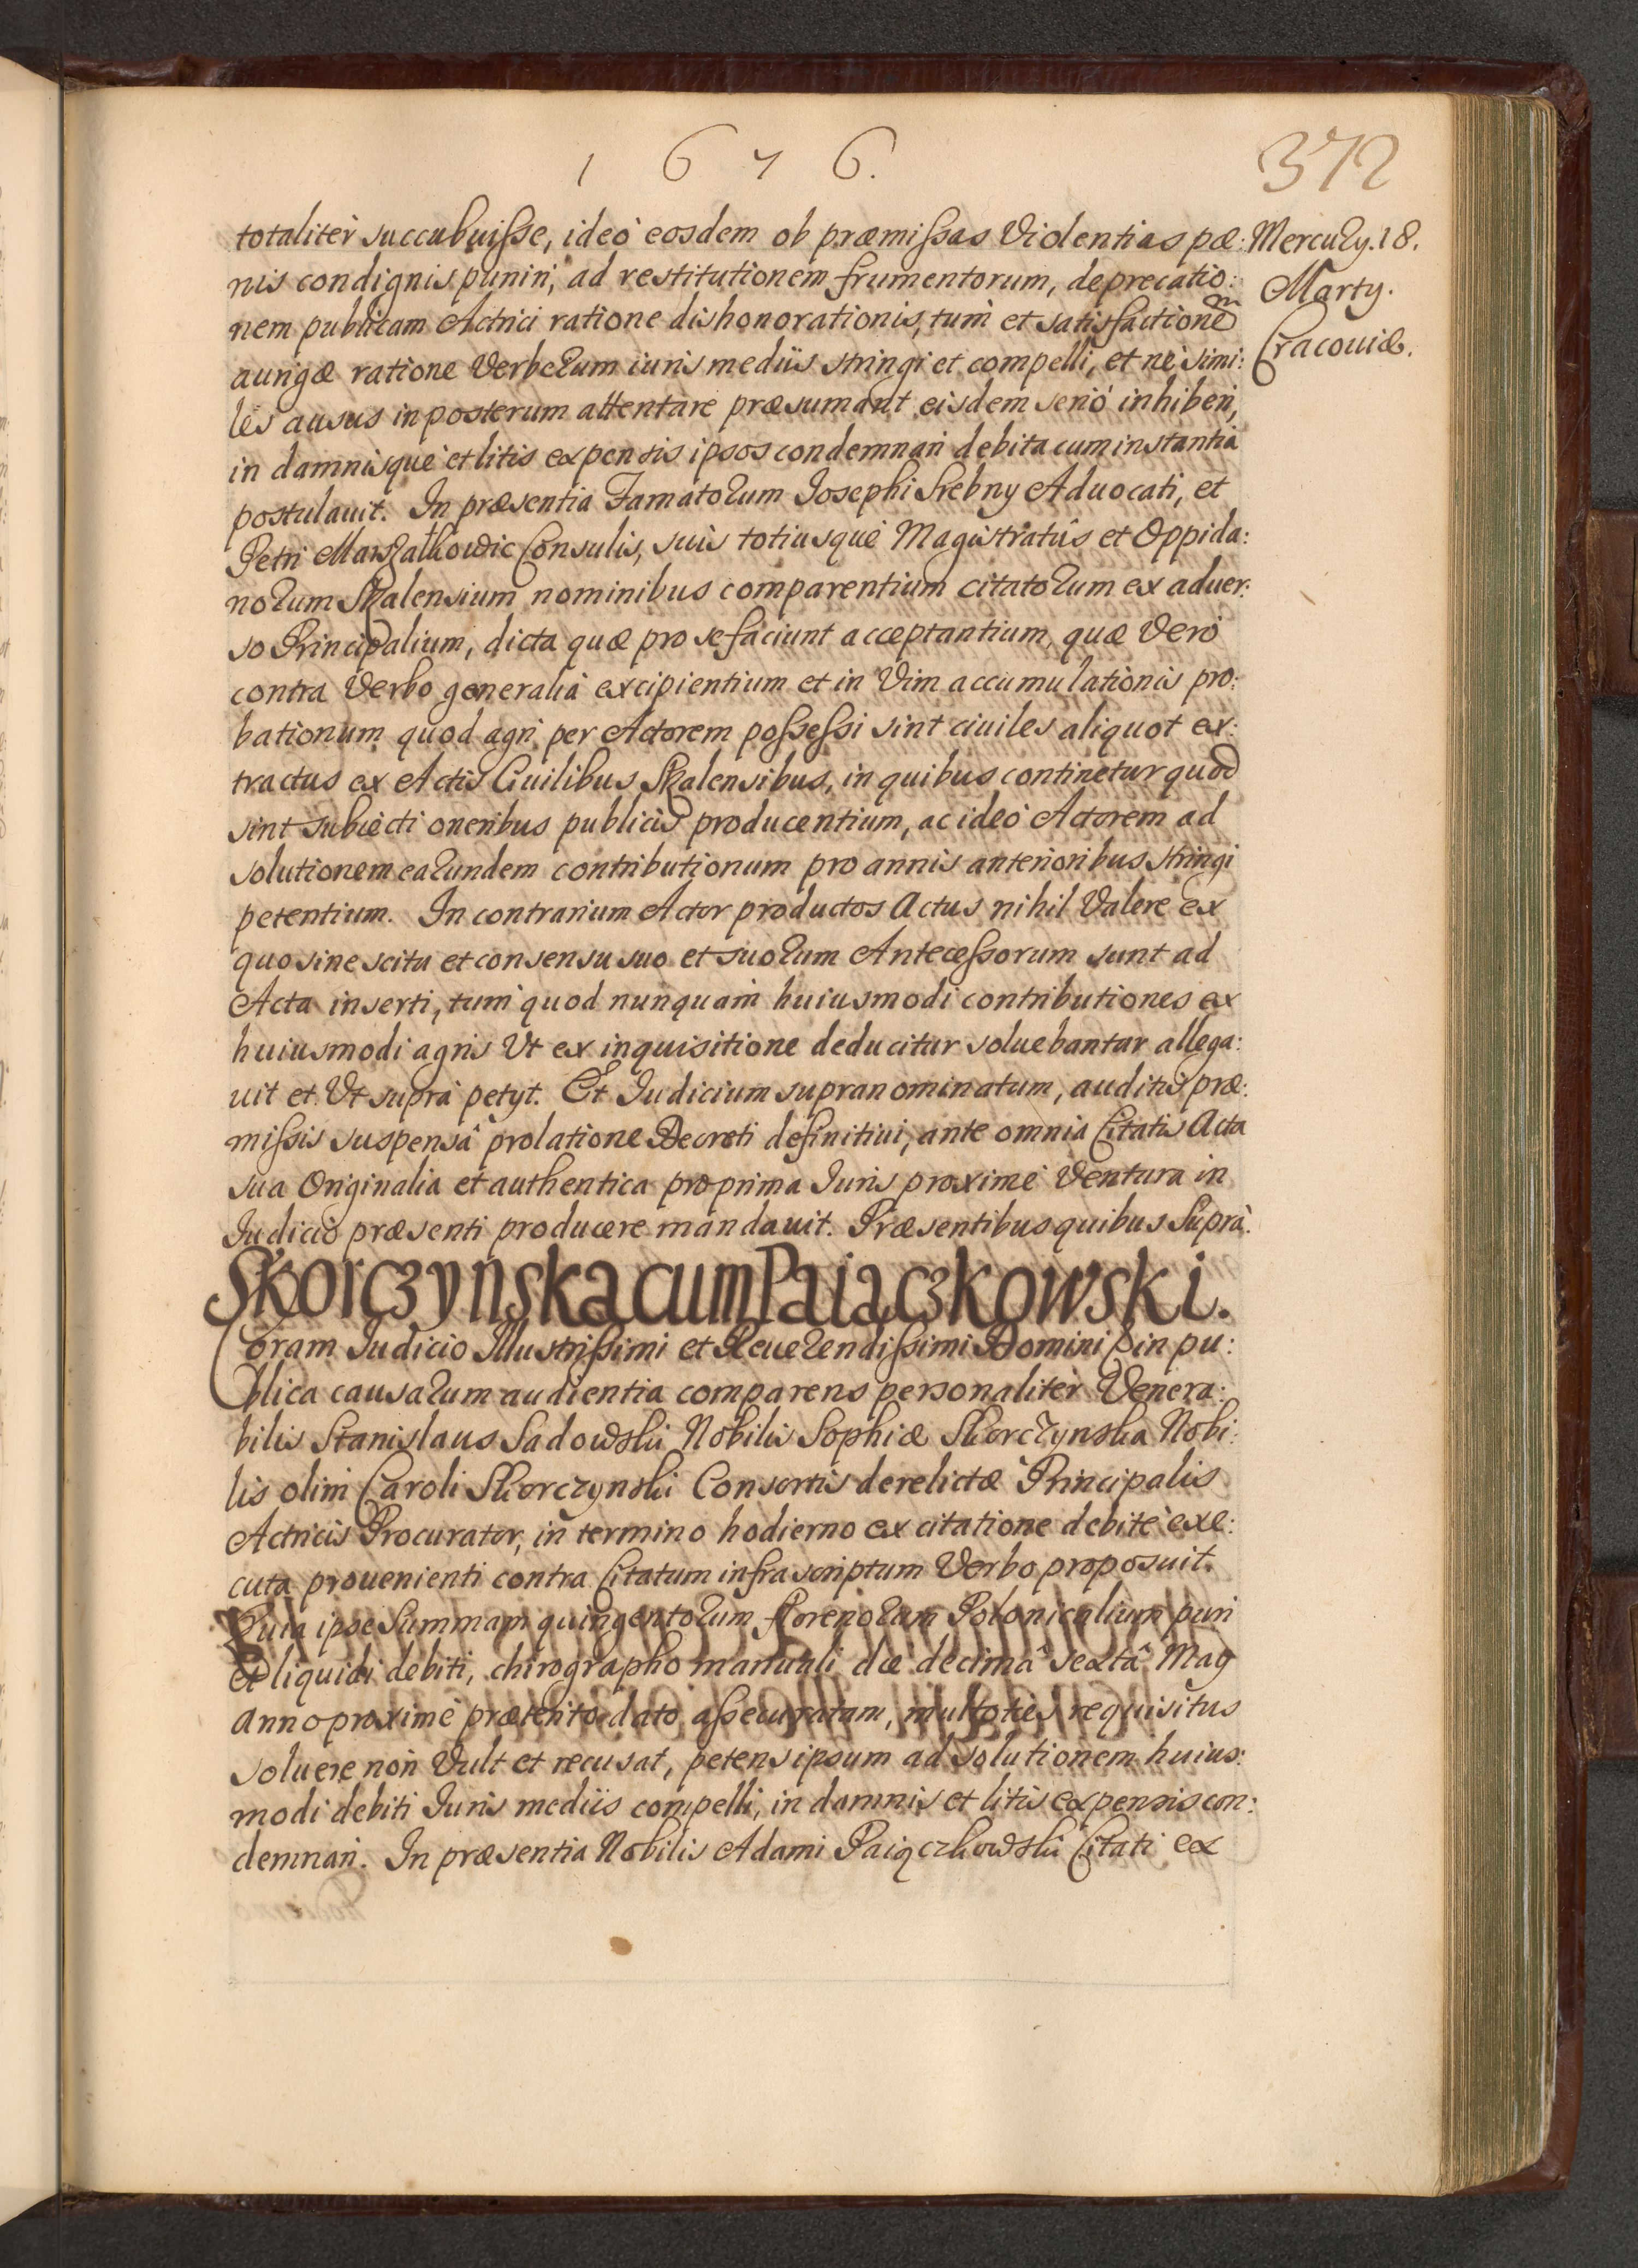 1 6 7 6.
372
Mercurÿ. 18.
Martÿ.
Cracouiæ.
totalitèr succubuisse, ideò eosdem ob præmissas Violentias pæ:
nis condignis puniri, ad restitutionem frumentorum, deprecatio:
nem publicam Actrici ratione dishonorationis, tum et satisfactionem
aurigæ ratione Verberum iuris mediis stringi et compelli, et nè simi:
les ausus in posterum attentare præsumant eisdem seriò inhiberi,
in damnisquè et litis expensis ipsos condemnari debita cum instantia
postulauit. In præsentia Famatorum Josephi Srebny Aduocati, et
Petri Marszalkowic Consulis, suis totiusquè Magistratûs et Oppida:
norum Skalensium nominibus comparentium citatorum ex aduer:
so Principalium, dicta quæ pro se faciunt acceptantium, quæ Verò
contra Verbo generalia excipientium et in Vim accumulationis pro:
bationum quod agri per Actorem possessi sint ciuiles aliquot ex:
tractus ex Actis Ciuilibus Skalensibus, in quibus continetur quod
sint subiecti oneribus publicis producentium, ac ideò Actorem ad
solutionem earundem contributionum pro annis anterioribus stringi
petentium. In contrarium Actor productos Actus nihil Valere ex
quo sine scitu et consensu suo et suorum Antecessorum sunt ad
Acta inserti, tum quod nunquam huiusmodi contributiones ex
huiusmodi agris Vt ex inquisitione deducitur soluebantur allega:
uit et Vt suprà petyt. Et Iudicium supranominatum, auditis præ:
missis suspensâ prolatione Decreti definitiui, ante omnia Citatis Acta
sua Originalia et authentica pro prima Iuris proximè Ventura in
Iudicio præsenti producere mandauit. Præsentibus quibus Suprà.
Skorczynska cum Paiączkowski.
Coram Iudicio Illustrissimi et Reuerendissimi Domini in pu:
blica causarum audientia comparens personalitèr Venera:
bilis Stanislaus Sadowski Nobilis Sophiæ Skorczynska Nobi:
lis olim Caroli Skorczynski Consortis derelictæ Principalis
Actricis Procurator, in termino hodierno ex citatione debitè exe:
cuta prouenienti contra Citatum infrascriptum Verbo proposuit.
Quia ipse Summam quingentorum florenorum Polonicalium puri
et liquidi debiti, chirographo manuali die decimâ sextâ May
anno proximè præterito dato assecuratam, multoties requisitus
soluere non Vult et recusat, petens ipsum ad solutionem huius:
modi debiti Iuris mediis compelli, in damnis et litis expensis con:
demnari. In præsentia Nobilis Adami Paiączkowski Citati ex